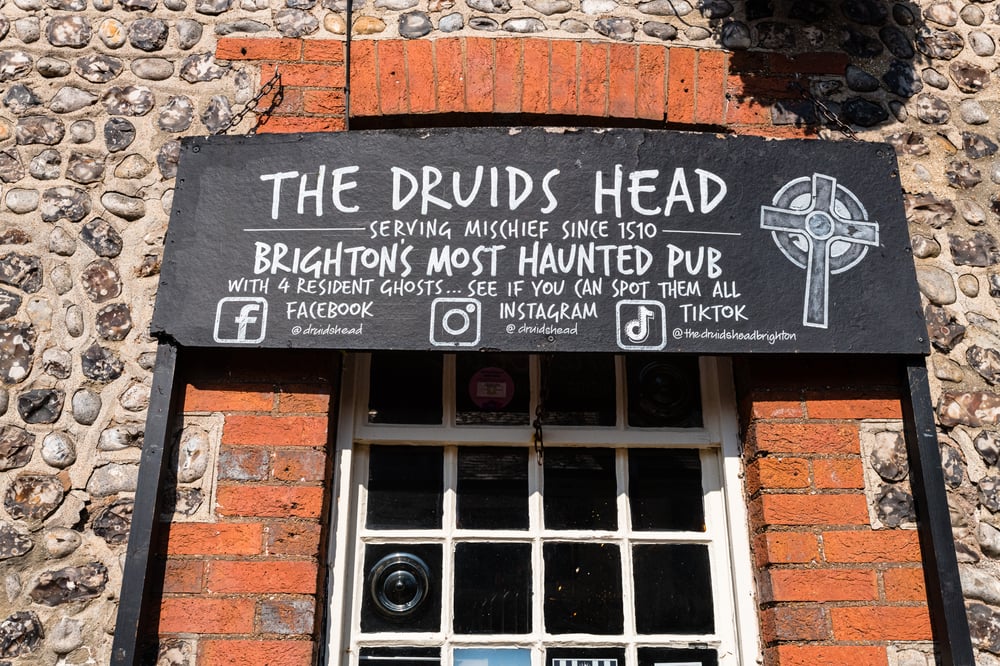 THE DRUIDS HEAD
SERVING MISCHIEF SINCE 1510
BRIGHTON'S MOST HAUNTED PUB
WITH 4 RESIDENT GHOSTS... SEE IF YOU CAN SPOT THEM ALL
FACEBOOK INSTAGRAM TIKTOK
@druidshead @druidshead @thedruidsheadbrighton